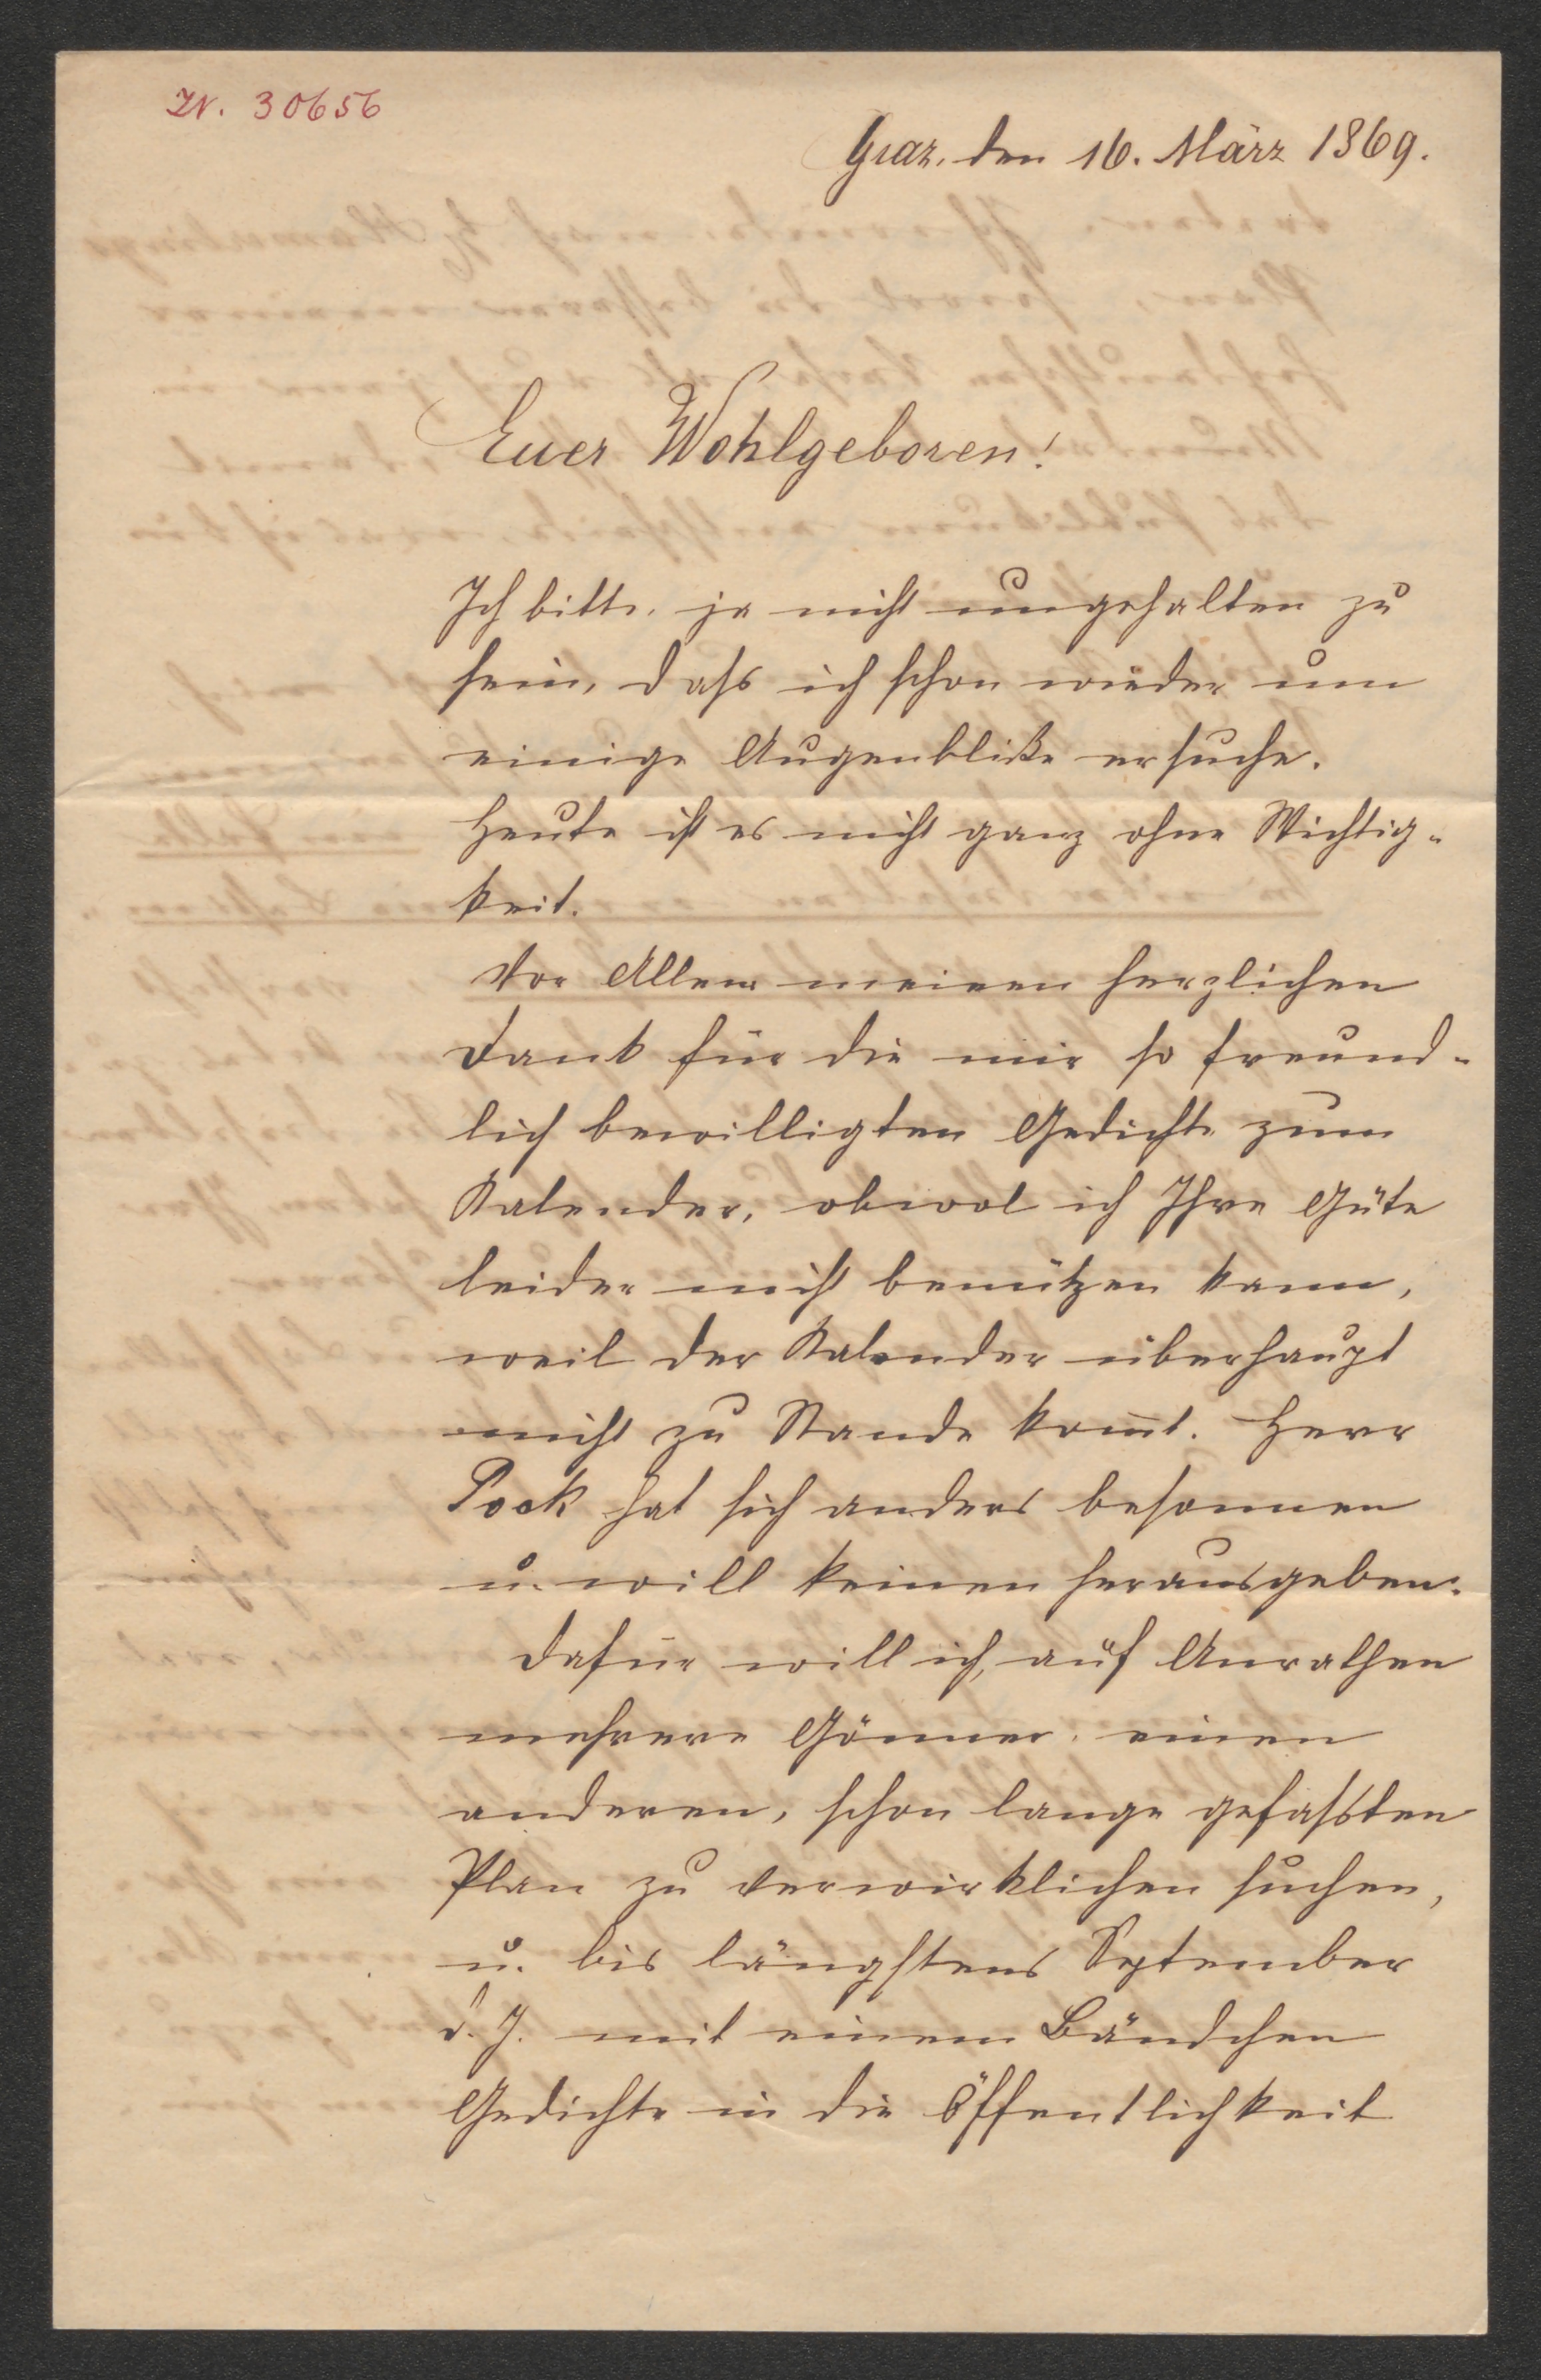 ZN. 30656
Graz, den 16. März 1869.
Euer Wohlgeboren!
Ich bitte, ja nicht ungehalten zu
sein, daß ich schon wieder um
einige Augenblicke ersuche.
Heute ist es nicht ganz ohne Wichtig-
keit.
Vor Allem meinen herzlichen
Dank für die mir so freund-
lich bewilligten Gedichte zum
Kalender, obwol ich Ihre Güte
leider nicht benützen kann,
weil der Kalender überhaupt
nicht zu Stande kom̄t. Herr
Pock hat sich anders besonnen
u. will keinen herausgeben.
Dafür will ich, auf Anrathen
mehrere Gönner, einen
anderen, schon lange gefaßten
Plan zu verwirklichen suchen,
u. bis längstens September
d. J. mit einem Bändchen
Gedichte in die Öffentlichkeit